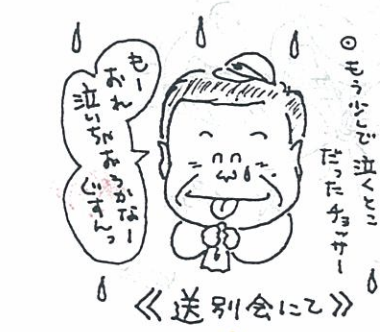 ◎もう少しで泣くとこ
だったチョッサー
もー
おれ
泣いちゃおうかなー
ぐすんっ
≪送別会にて≫